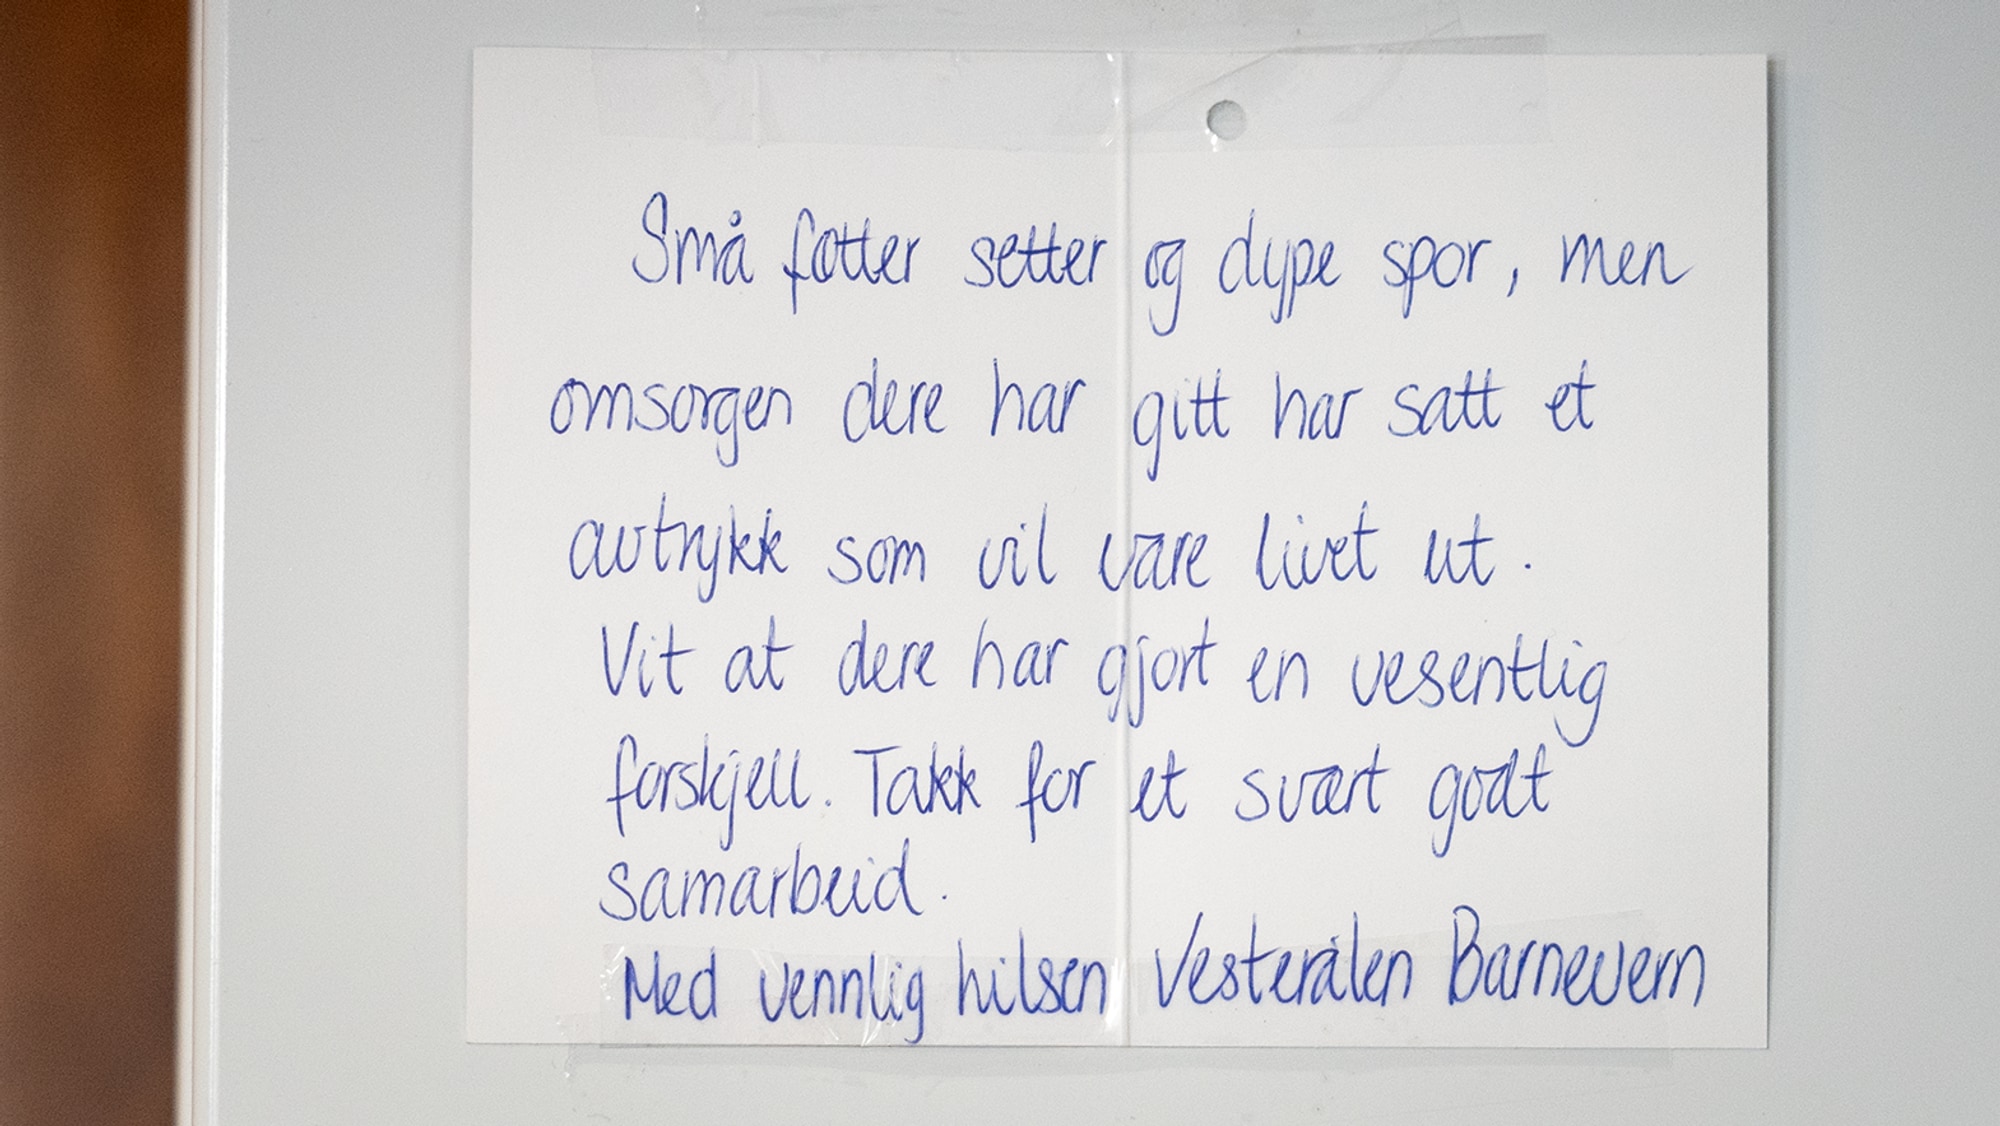 Små føtter setter og dype spor, men
omsorgen dere har gitt har satt et
avtrykk som vil vare livet ut.
Vit at dere har gjort en vesentlig
forskjell. Takk for et svært godt
samarbeid.
Med vennlig hilsen Vesterålen Barnevern